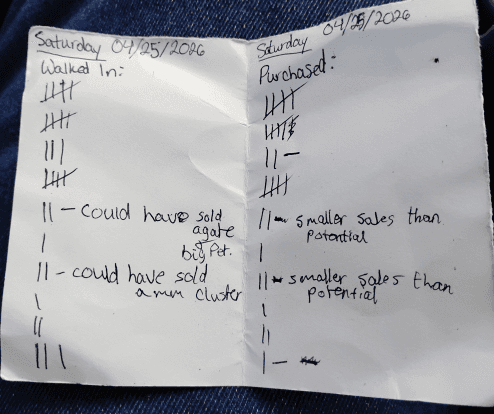 Saturday 04/25/2026
Walked In:
||||
||||
|||
||||
|| - could have sold
agate
big Pet.
|
|| - could have sold
amm cluster
|
||
|||
Saturday 04/25/2026
Purchased:
||||
||||
|| -
||||
|| - smaller sales than
potential
|
|| - smaller sales than
potential
|
||
| -